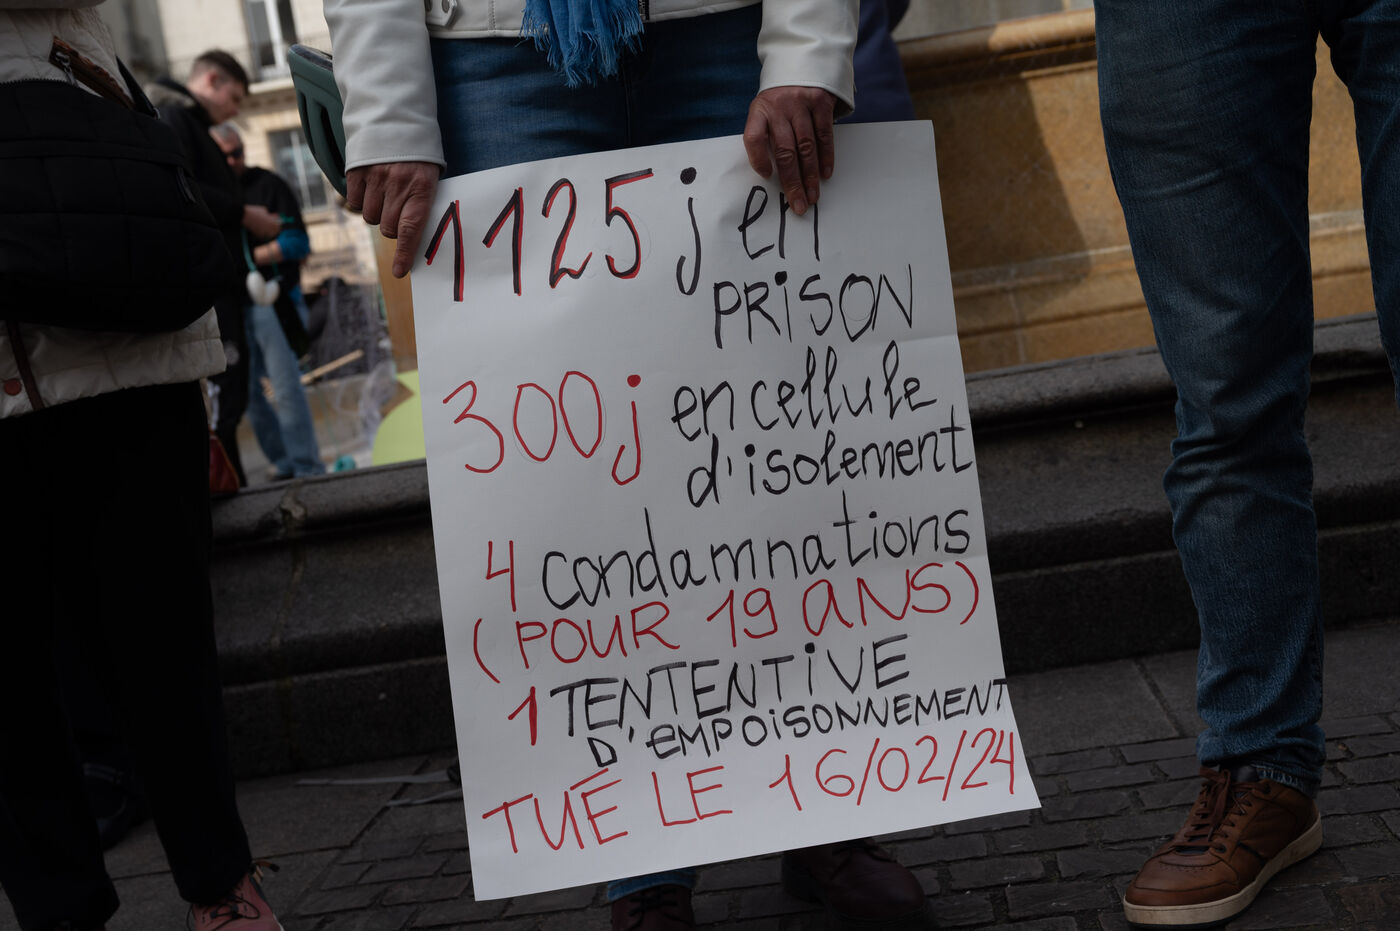 1125 j en
PRiSON
300j en cellule
d'isolement
4 condamnations
(POUR 19 ANS)
1 TENTENTiVE
D'EMPOiSONNEMENT
TUÉ LE 16/02/24